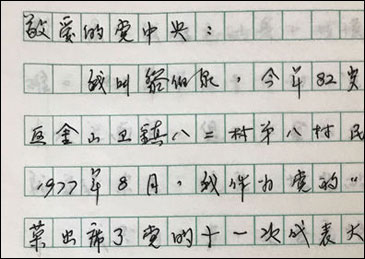 敬爱的党中央：
我叫黎伯泉，今年82岁
区金山卫镇八二村第八村民
1977年8月，我作为党的“
菜出席了党的十一次代表大